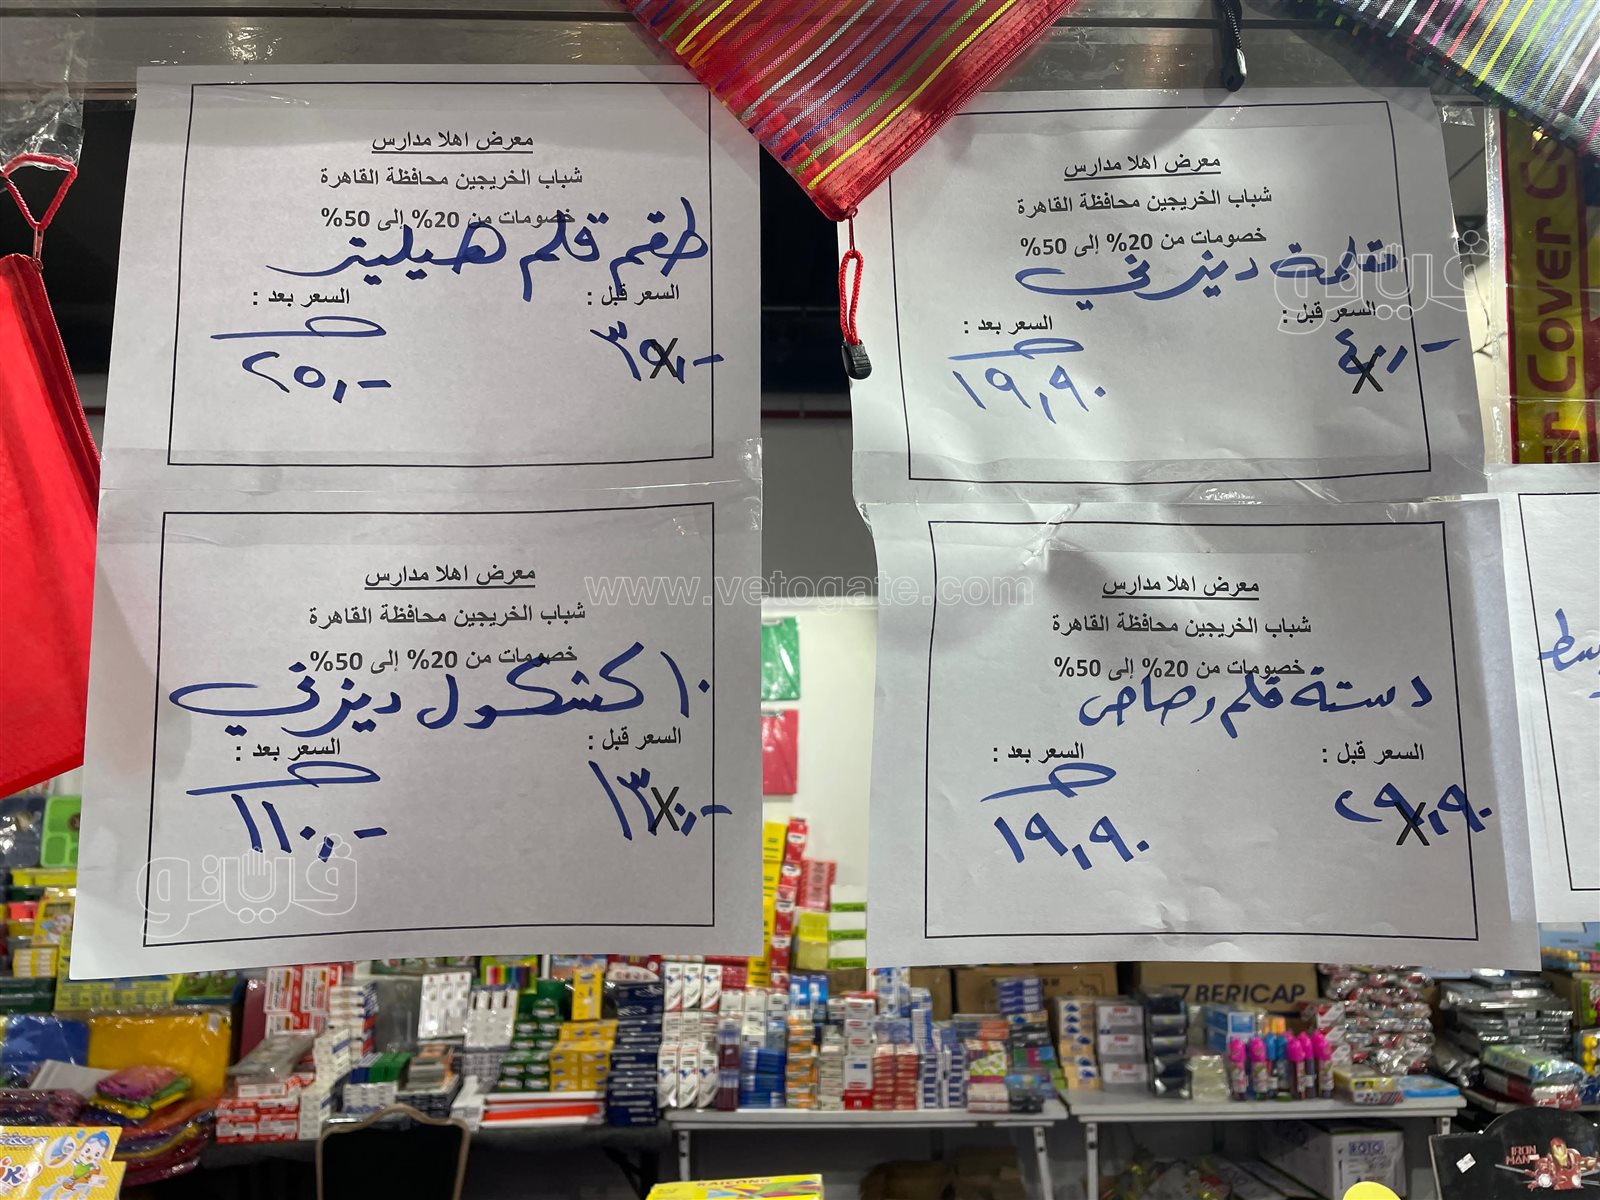 معرض اهلا مدارس
شباب الخريجين محافظة القاهرة
خصومات من 20% إلى 50%
مقلمة ديزني
السعر قبل :
السعر بعد :
٤٠,-
١٩,٩٠
معرض اهلا مدارس
شباب الخريجين محافظة القاهرة
خصومات من 20% إلى 50%
طقم قلم هيليتر
السعر قبل :
السعر بعد :
٣٥,-
٢٥,-
معرض اهلا مدارس
شباب الخريجين محافظة القاهرة
خصومات من 20% إلى 50%
دستة قلم رصاص
السعر قبل :
السعر بعد :
٢٩,٩٠
١٩,٩٠
معرض اهلا مدارس
شباب الخريجين محافظة القاهرة
خصومات من 20% إلى 50%
١٠ كشكول ديزني
السعر قبل :
السعر بعد :
١٣٠,-
١١٠,-
www.vetogate.com
ڤيتو
ڤيتو
Cover
Cover
BERICAP
ROTO
IRON
MAN